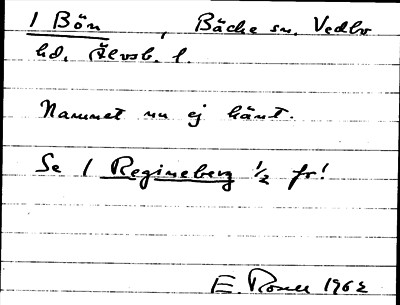 1 Bön, Bäcke sn. Vedbo
hd. Älvsb. l.
Namnet nu ej känt.
Se 1 Regineberg 1/2 fr!
E. Rosell 1962